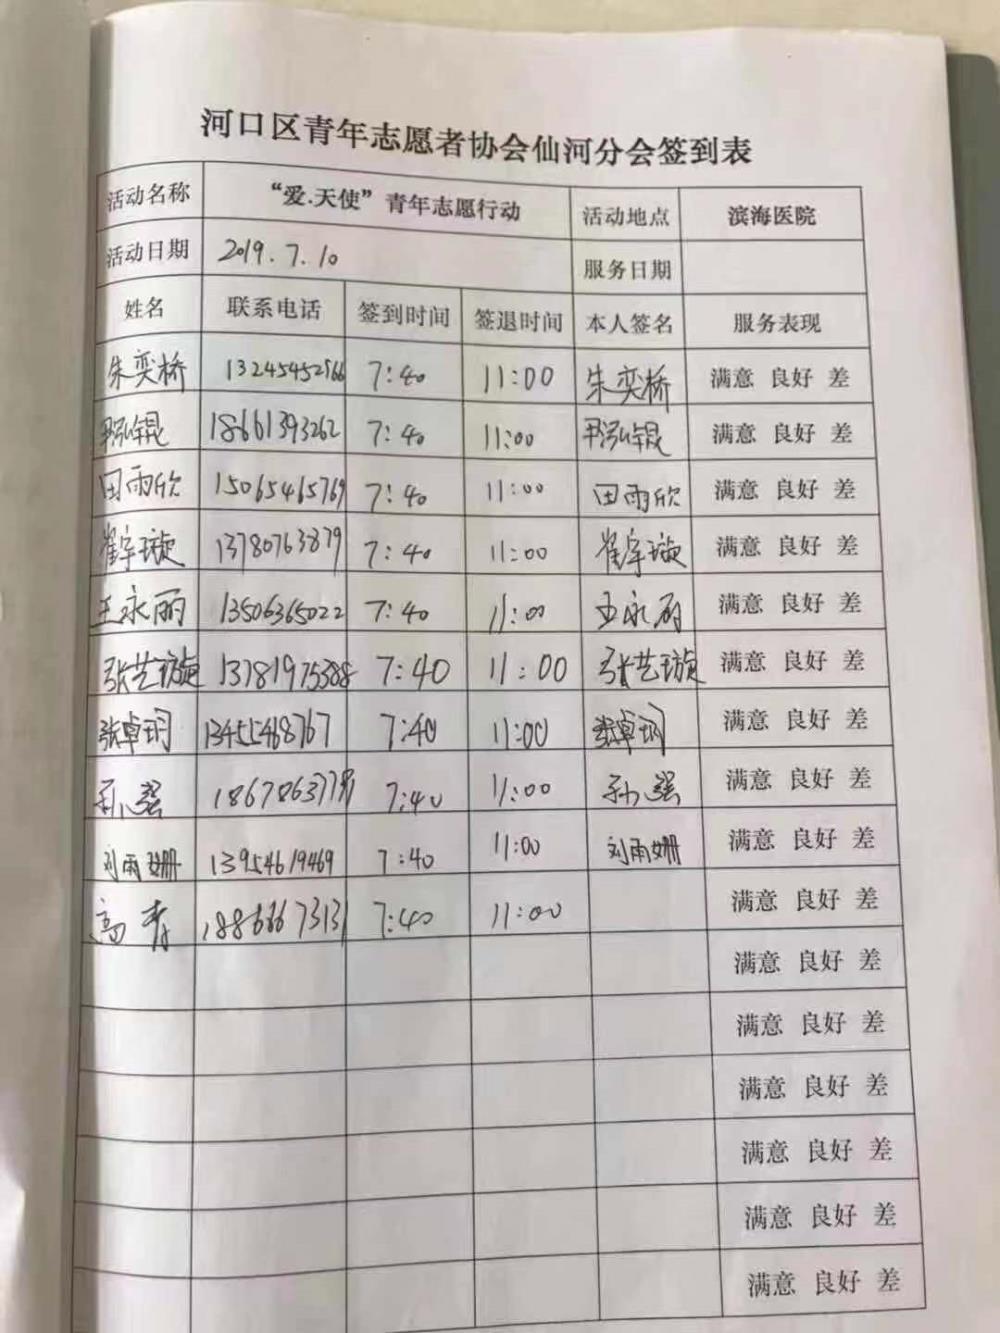 河口区青年志愿者协会仙河分会签到表
活动名称 “爱.天使”青年志愿行动 活动地点 滨海医院
活动日期 2019.7.10 服务日期
姓名 联系电话 签到时间 签退时间 本人签名 服务表现
朱奕桥 13245452966 7:40 11:00 朱奕桥 满意 良好 差
18661393262 7:40 11:00 满意 良好 差
田雨欣 15065465769 7:40 11:00 田雨欣 满意 良好 差
崔宇璇 13780763879 7:40 11:00 崔宇璇 满意 良好 差
王永丽 13506365022 7:40 11:00 王永丽 满意 良好 差
张艺璇 7:40 11:00 张艺璇 满意 良好 差
张卓玥 13455468767 7:40 11:00 张卓玥 满意 良好 差
孙强 7:40 11:00 孙强 满意 良好 差
刘雨姗 13954619469 7:40 11:00 刘雨姗 满意 良好 差
高青 18866673131 7:40 11:00 满意 良好 差
满意 良好 差
满意 良好 差
满意 良好 差
满意 良好 差
满意 良好 差
满意 良好 差